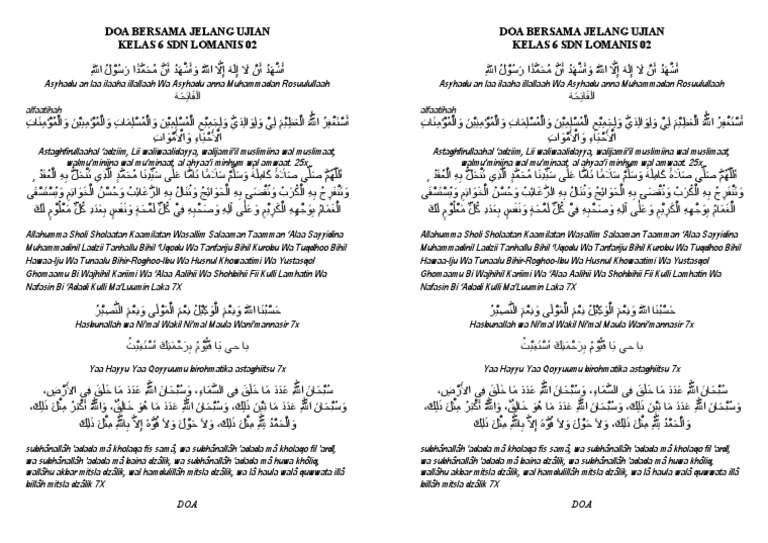 DOA BERSAMA JELANG UJIAN
KELAS 6 SDN LOMANIS 02
أَشْهَدُ أَنْ لَا إِلَهَ إِلَّا اللهُ وَأَشْهَدُ أَنَّ مُحَمَّدًا رَسُوْلُ اللهِ
Asyhadu an laa ilaaha illallaah Wa Asyhadu anna Muhammadan Rosuulullaah
الْفَاتِحَة
alfaatihah
أَسْتَغْفِرُ اللهَ الْعَظِيْمَ لِيْ وَلِوَالِدَيَّ وَلِجَمِيْعِ الْمُسْلِمِيْنَ وَالْمُسْلِمَاتِ وَالْمُؤْمِنِيْنَ وَالْمُؤْمِنَاتِ
الْأَحْيَاءِ وَالْأَمْوَاتِ
Astaghfirullaahal 'adziim, Lii waliwaalidayya, walijamii'il muslimiina wal muslimaat,
walmu'miniina wal mu'minaat, al ahyaa'i minhum wal amwaat. 25x
اَللّٰهُمَّ صَلِّ صَلَاةً كَامِلَةً وَسَلِّمْ سَلَامًا تَامًّا عَلَى سَيِّدِنَا مُحَمَّدٍ الَّذِي تَنْحَلُّ بِهِ الْعُقَدُ ,
وَتَنْفَرِجُ بِهِ الْكُرَبُ وَتُقْضَى بِهِ الْحَوَائِجُ وَتُنَالُ بِهِ الرَّغَائِبُ وَحُسْنُ الْخَوَاتِمِ وَيُسْتَسْقَى
الْغَمَامُ بِوَجْهِهِ الْكَرِيْمِ وَعَلَى آلِهِ وَصَحْبِهِ فِيْ كُلِّ لَمْحَةٍ وَنَفَسٍ بِعَدَدِ كُلِّ مَعْلُوْمٍ لَكَ
Allahumma Sholi Sholaatan Kaamilatan Wasallim Salaaman Taamman 'Alaa Sayyidina
Muhammadinil Ladzii Tanhallu Bihil 'Uqodu Wa Tanfariju Bihil Kurobu Wa Tuqdhoo Bihil
Hawaa-Iju Wa Tunaalu Bihir-Roghoo-Ibu Wa Husnul Khowaatimi Wa Yustasqol
Ghomaamu Bi Wajhihil Kariimi Wa 'Alaa Aalihii Wa Shohbihii Fii Kulli Lamhatin Wa
Nafasin Bi 'Adadi Kulli Ma'Luumin Laka 7X
حَسْبُنَا اللهُ وَنِعْمَ الْوَكِيْلُ نِعْمَ الْمَوْلَى وَنِعْمَ النَّصِيْرُ
Hasbunallah wa Ni'mal Wakil Ni'mal Maula Wani'mannasir 7x
يا حي يا قَيُّوْمُ بِرَحْمَتِكَ أَسْتَغِيْثُ
Yaa Hayyu Yaa Qoyyuumu birohmatika astaghiitsu 7x
سُبْحَانَ اللَّهِ عَدَدَ مَا خَلَقَ فِي السَّمَاءِ، وَسُبْحَانَ اللَّهِ عَدَدَ مَا خَلَقَ فِي الْأَرْضِ،
وَسُبْحَانَ اللَّهِ عَدَدَ مَا بَيْنَ ذَلِكَ، وَسُبْحَانَ اللَّهِ عَدَدَ مَا هُوَ خَالِقٌ، وَاللَّهُ أَكْبَرُ مِثْلَ ذَلِكَ،
وَالْحَمْدُ لِلَّهِ مِثْلَ ذَلِكَ، وَلَا حَوْلَ وَلَا قُوَّةَ إِلَّا بِاللَّهِ مِثْلَ ذَلِكَ
subhânallâh 'adada mâ kholaqa fis samâ, wa subhânallâh 'adada mâ kholaqo fil 'ardl,
wa subhânallâh 'adada mâ baina dzâlik, wa subhânallâh 'adada mâ huwa khôliq,
wallâhu akbar mitsla dzâlik, wal hamdulillâh mitsla dzâlik, wa lâ haula walâ quwwata illâ
billâh mitsla dzâlik 7X
DOA
DOA BERSAMA JELANG UJIAN
KELAS 6 SDN LOMANIS 02
أَشْهَدُ أَنْ لَا إِلَهَ إِلَّا اللهُ وَأَشْهَدُ أَنَّ مُحَمَّدًا رَسُوْلُ اللهِ
Asyhadu an laa ilaaha illallaah Wa Asyhadu anna Muhammadan Rosuulullaah
الْفَاتِحَة
alfaatihah
أَسْتَغْفِرُ اللهَ الْعَظِيْمَ لِيْ وَلِوَالِدَيَّ وَلِجَمِيْعِ الْمُسْلِمِيْنَ وَالْمُسْلِمَاتِ وَالْمُؤْمِنِيْنَ وَالْمُؤْمِنَاتِ
الْأَحْيَاءِ وَالْأَمْوَاتِ
Astaghfirullaahal 'adziim, Lii waliwaalidayya, walijamii'il muslimiina wal muslimaat,
walmu'miniina wal mu'minaat, al ahyaa'i minhum wal amwaat. 25x
اَللّٰهُمَّ صَلِّ صَلَاةً كَامِلَةً وَسَلِّمْ سَلَامًا تَامًّا عَلَى سَيِّدِنَا مُحَمَّدٍ الَّذِي تَنْحَلُّ بِهِ الْعُقَدُ ,
وَتَنْفَرِجُ بِهِ الْكُرَبُ وَتُقْضَى بِهِ الْحَوَائِجُ وَتُنَالُ بِهِ الرَّغَائِبُ وَحُسْنُ الْخَوَاتِمِ وَيُسْتَسْقَى
الْغَمَامُ بِوَجْهِهِ الْكَرِيْمِ وَعَلَى آلِهِ وَصَحْبِهِ فِيْ كُلِّ لَمْحَةٍ وَنَفَسٍ بِعَدَدِ كُلِّ مَعْلُوْمٍ لَكَ
Allahumma Sholi Sholaatan Kaamilatan Wasallim Salaaman Taamman 'Alaa Sayyidina
Muhammadinil Ladzii Tanhallu Bihil 'Uqodu Wa Tanfariju Bihil Kurobu Wa Tuqdhoo Bihil
Hawaa-Iju Wa Tunaalu Bihir-Roghoo-Ibu Wa Husnul Khowaatimi Wa Yustasqol
Ghomaamu Bi Wajhihil Kariimi Wa 'Alaa Aalihii Wa Shohbihii Fii Kulli Lamhatin Wa
Nafasin Bi 'Adadi Kulli Ma'Luumin Laka 7X
حَسْبُنَا اللهُ وَنِعْمَ الْوَكِيْلُ نِعْمَ الْمَوْلَى وَنِعْمَ النَّصِيْرُ
Hasbunallah wa Ni'mal Wakil Ni'mal Maula Wani'mannasir 7x
يا حي يا قَيُّوْمُ بِرَحْمَتِكَ أَسْتَغِيْثُ
Yaa Hayyu Yaa Qoyyuumu birohmatika astaghiitsu 7x
سُبْحَانَ اللَّهِ عَدَدَ مَا خَلَقَ فِي السَّمَاءِ، وَسُبْحَانَ اللَّهِ عَدَدَ مَا خَلَقَ فِي الْأَرْضِ،
وَسُبْحَانَ اللَّهِ عَدَدَ مَا بَيْنَ ذَلِكَ، وَسُبْحَانَ اللَّهِ عَدَدَ مَا هُوَ خَالِقٌ، وَاللَّهُ أَكْبَرُ مِثْلَ ذَلِكَ،
وَالْحَمْدُ لِلَّهِ مِثْلَ ذَلِكَ، وَلَا حَوْلَ وَلَا قُوَّةَ إِلَّا بِاللَّهِ مِثْلَ ذَلِكَ
subhânallâh 'adada mâ kholaqa fis samâ, wa subhânallâh 'adada mâ kholaqo fil 'ardl,
wa subhânallâh 'adada mâ baina dzâlik, wa subhânallâh 'adada mâ huwa khôliq,
wallâhu akbar mitsla dzâlik, wal hamdulillâh mitsla dzâlik, wa lâ haula walâ quwwata illâ
billâh mitsla dzâlik 7X
DOA